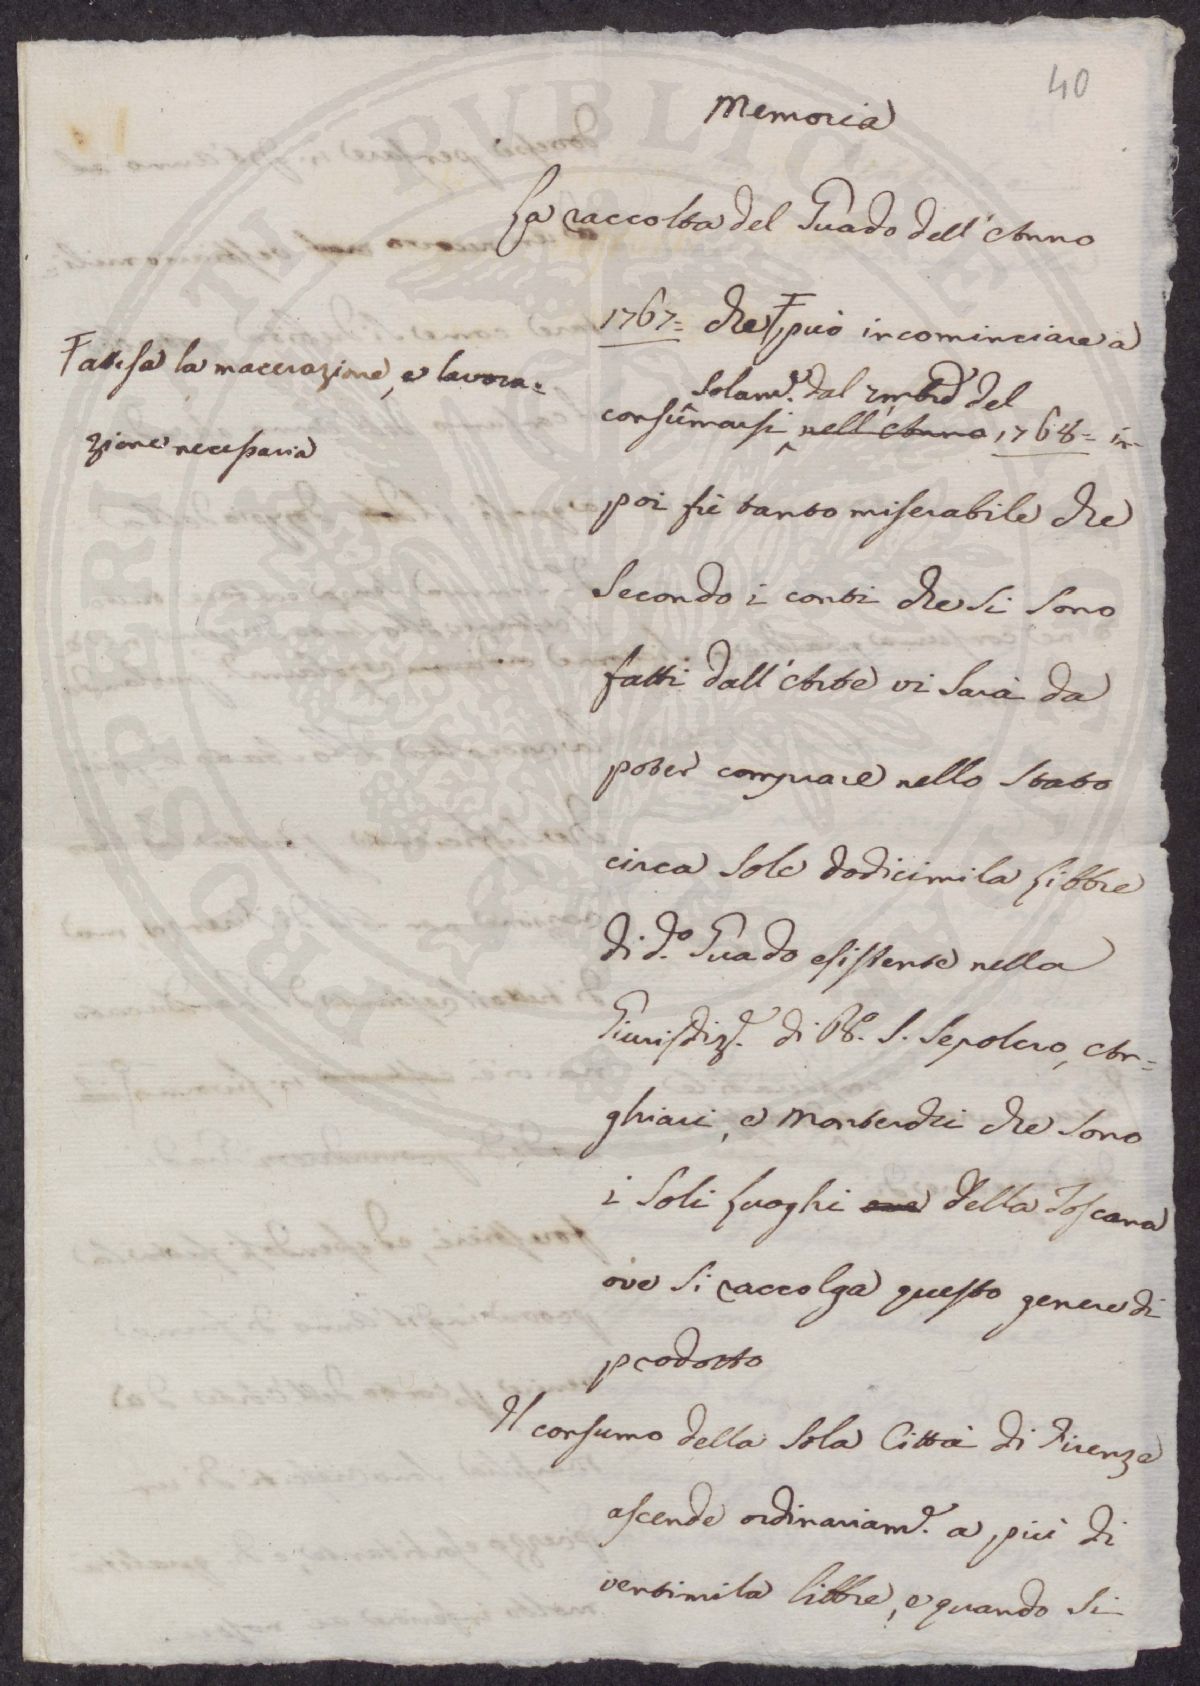 40
Memoria
La raccolta del Guado dell'Anno
1767= che Ŧ può incominciare a
Ŧ attesa la macerazione, e lavora=
zione necessaria
solam.e dal 7mbre del
consumarsi ^ nell'Anno 1768= in
poi fù tanto miserabile che
secondo i conti che si sono
fatti dall'Arte vi sarà da
poter comprare nello Stato
circa sole dodicimila Libbre
di d.o Guado esistente nella
Giurisdiz.e di B.o S. Sepolcro, An=
ghiari, e Monterchi che sono
i soli Luoghi ove della Toscana
ove si raccolga questo genere di
prodotto
Il consumo della sola Città di Firenze
ascende ordinariam.e a più di
ventimila libbre, e quando si